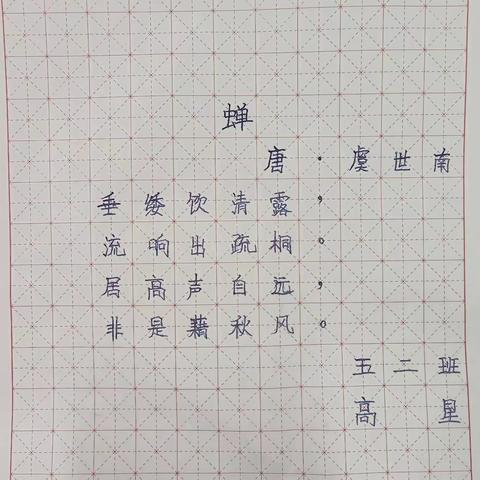 蝉
唐·虞世南
垂矮饮清露，
流响出疏桐。
居高声自远，
非是藉秋风。
五二班
高星